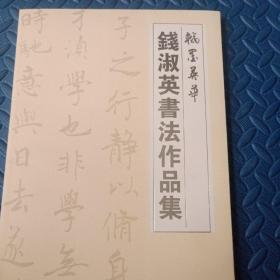 翰墨英华
錢淑英書法作品集
子之行靜以脩身
才須學也非學無
時馳意與日去遂